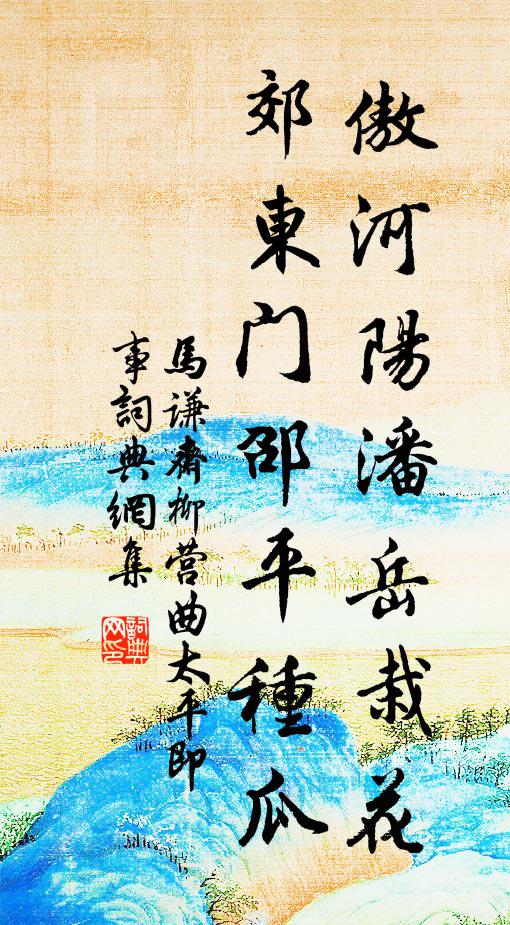 傲河陽潘岳栽花
郊東門邵平種瓜
馬谦齋柳营曲太平即
事詞典網集